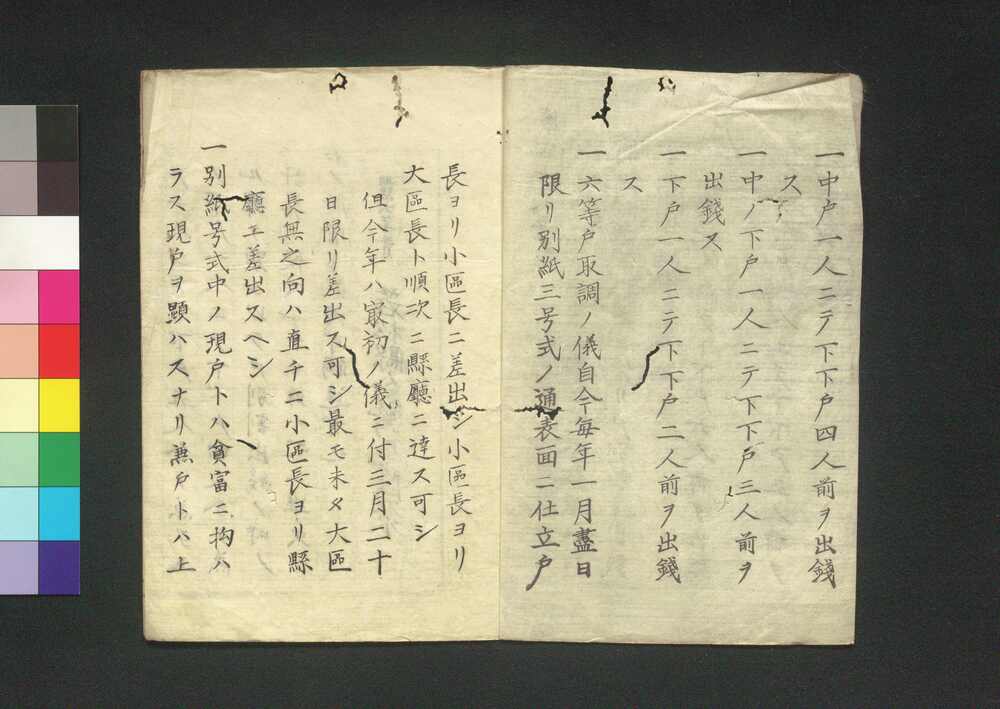 一中戸一人ニテ下下戸四人前ヲ出錢
ス
一中ノ下戸一人ニテ下下戸三人前ヲ
出錢ス
一下戸一人ニテ下下戸二人前ヲ出錢
ス
一六等戸取調ノ儀自今毎年一月盡日
限リ別紙三号式ノ通表面ニ仕立戸
長ヨリ小區長ニ差出シ小區長ヨリ
大區長ト順次ニ縣廳ニ達ス可シ
但今年ハ㝡初ノ儀ニ付三月二十
日限リ差出ス可シ最モ未タ大區
長無之向ハ直チニ小區長ヨリ縣
廳エ差出スヘシ
一別紙号式中ノ現戸トハ貧富ニ拘ハ
ラス現戸ヲ顕ハスナリ無戸トハ上